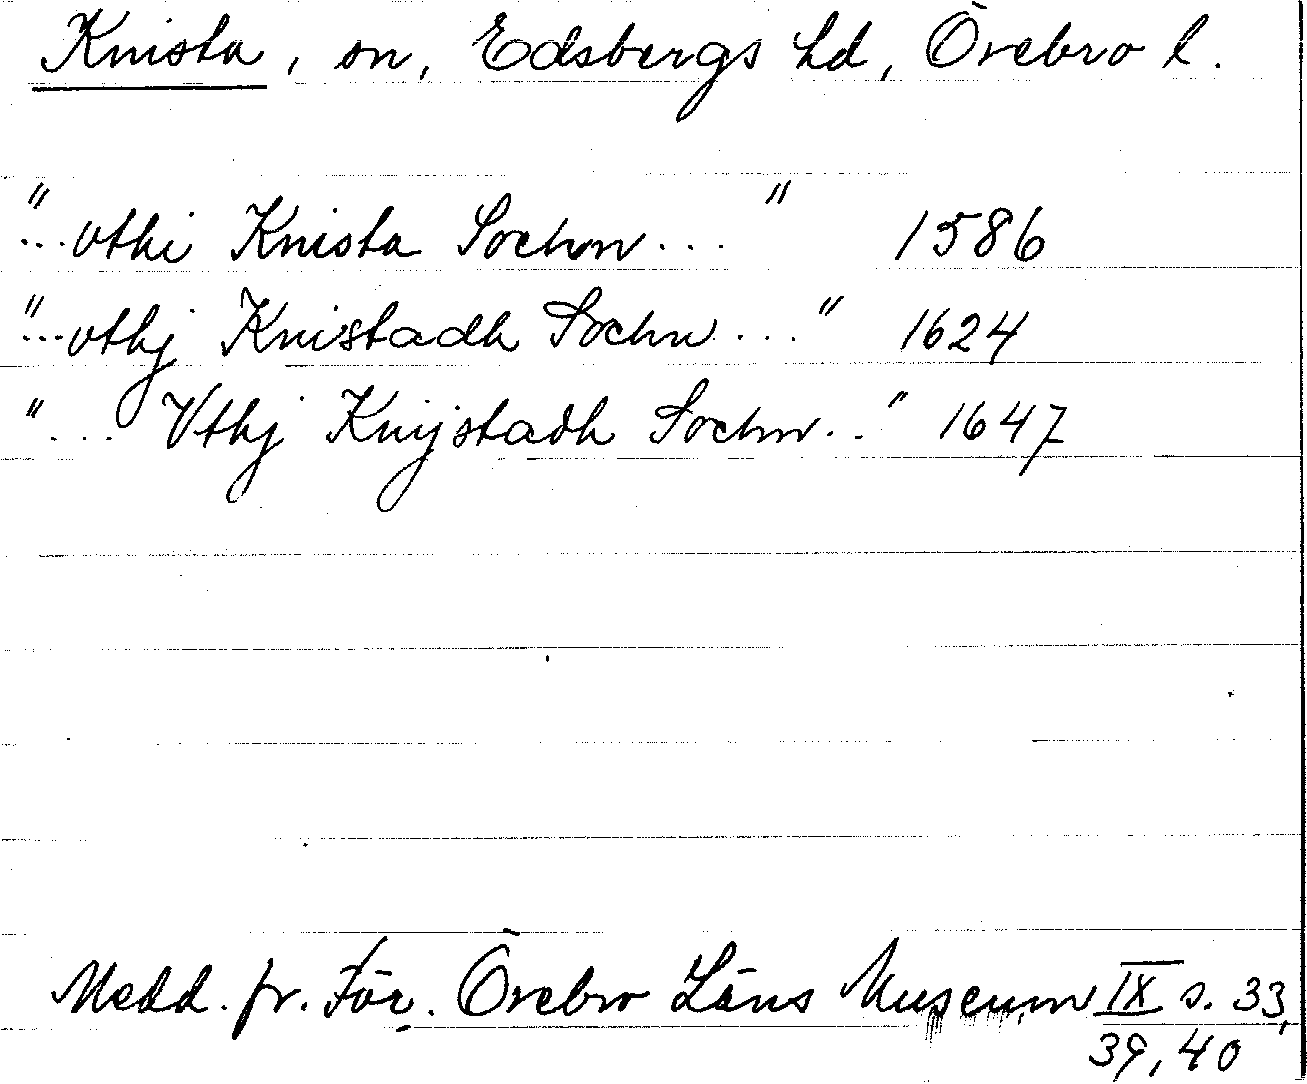 Knista, sn, Edsbergs hd, Örebro l.
"...vthi Knista Sochnn..." 1586
"...vthj Knistadh Sochn..." 1624
"... Vthj Knijstadh Sochnn.." 1647
Medd. fr. För. Örebro Läns Museum IX s. 33,
39, 40